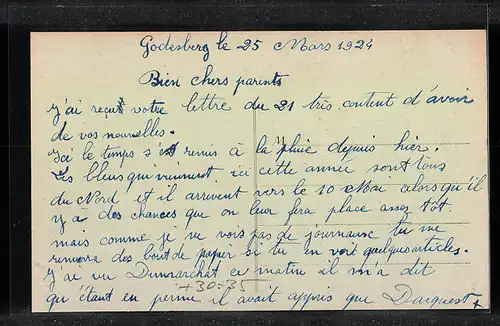 Godesberg le 25 Mars 1924
Bien chers parents
J'ai reçut votre lettre du 21 très content d'avoir
de vos nouvelles.
Ici le temps s'est remis à la pluie depuis hier.
Les bleus qui viennent ici cette année sont tous
du Nord et il arrivent vers le 10 Mai alors qu'il
y a des chances que on leur fera place assez tôt.
mais comme je ne vois pas de journaux tu me
remera des bout de papier si tu en voit quelques articles.
J'ai vu Dumarchat ce matin il m'a dit
qu'étant en perme il avait appris que Darquest
+30-35